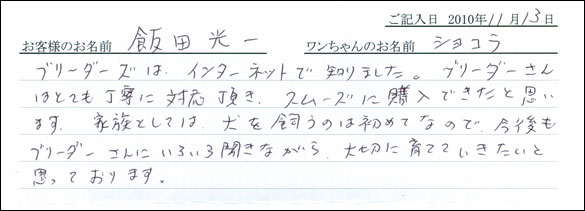 ご記入日 2010年11月13日
お客様のお名前 飯田光一 ワンちゃんのお名前 ショコラ
ブリーダーズは、インターネットで知りました。ブリーダーさん
はとても丁寧に対応頂き、スムーズに購入できたと思い
ます。家族としては、犬を飼うのは初めてなので、今後も
ブリーダーさんにいろいろ聞きながら、大切に育てていきたいと
思っております。